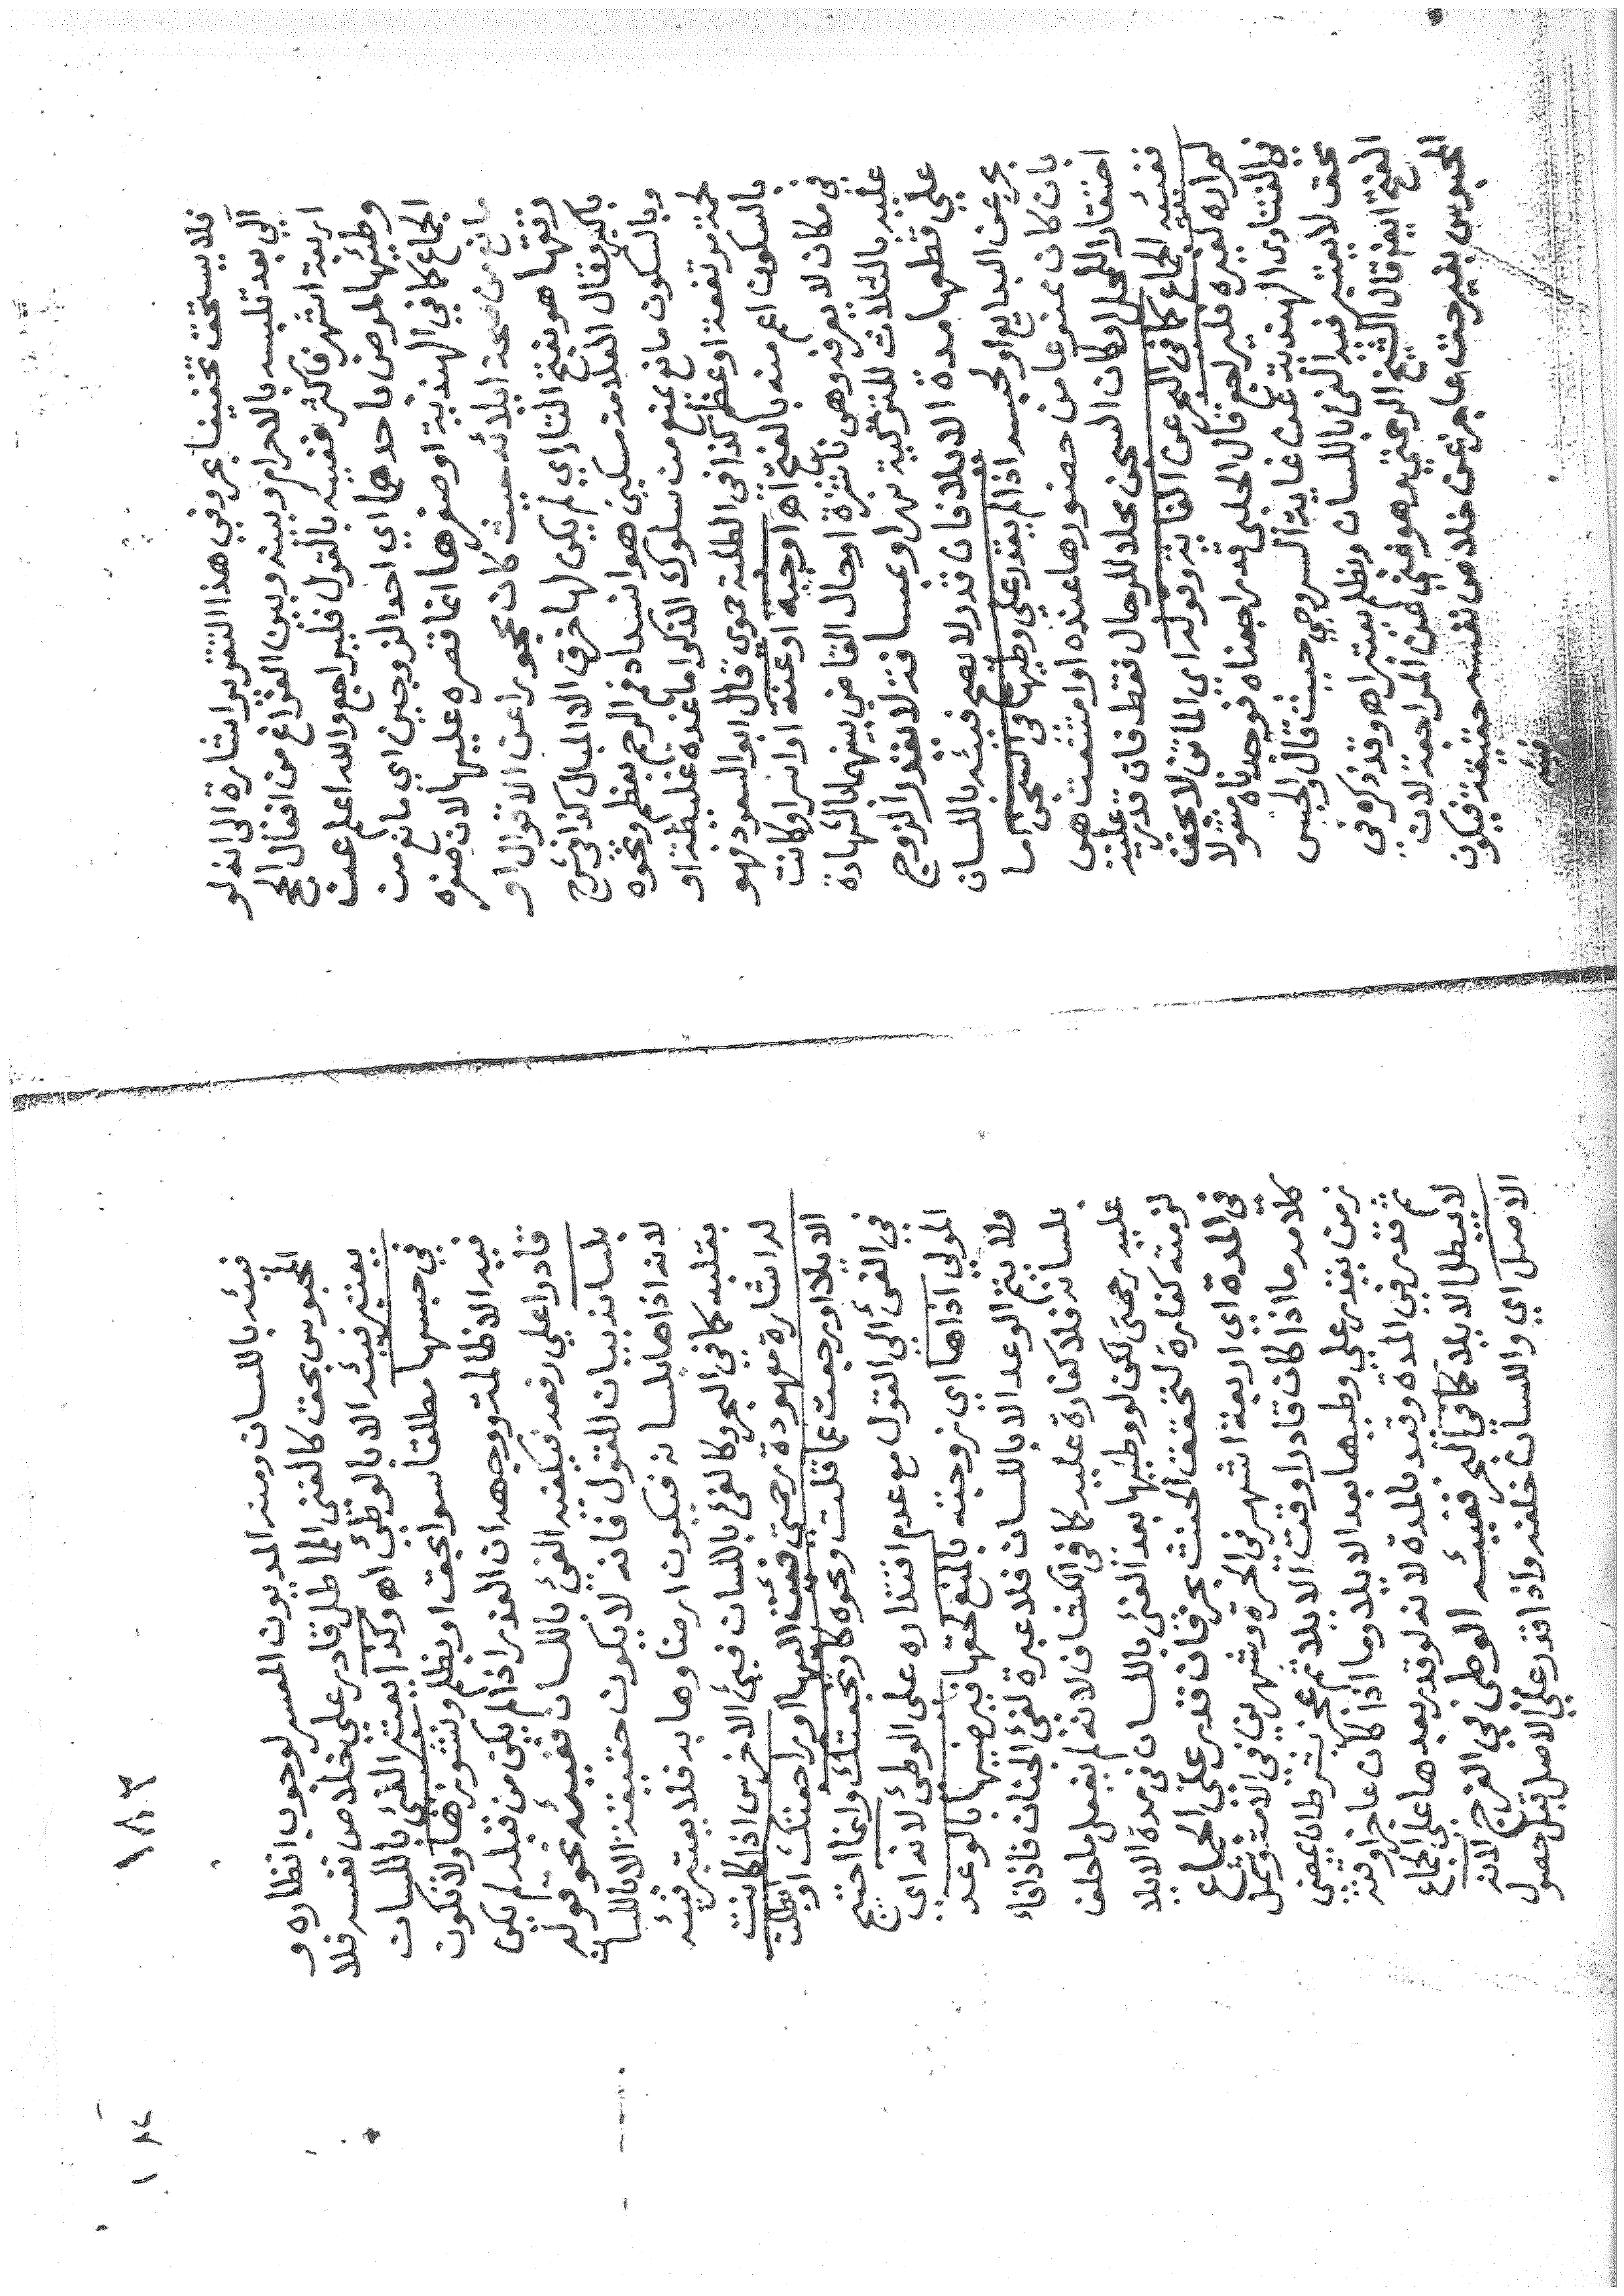 فلا يستحق تخفيفا بحر وفي هذا التقرير اشارة الى انه لو
الى بعد تلبسه بالاحرام وبينه وبين الفراغ من افعال الحج
اربعة اشهر فاكثر ففيئه بالقول فليراجع والله اعلم عنث
وطئها لمرض باحدهما اي احد الزوجين اي مانع من
الجماع كما في الهندية او صغرها انما قصره عليها لان صغره
مانع من صحة ايلائه حيث كان محجورا عن الاقوال او
رتقها هو بفتح التا اي لم يكن لها خرق الا المبال كذا في شرح
باكير وقال العلامة مسكين هو انسداد فم الرحم بعظم ونحوه
وبالسكون مانع يمنع من سلوك الذكر اما غدة غليظة او
لحمة مرتفعة او عظم كذا في الطلبة حموي قال ابو السعود فهو
بالسكون اعم منه بالفتح اه او جبه او عنة او اسر او كانت
في مكان لا يعرفه وهي ناشزة او حال القاضي بينهما لشهادة
عليه بالثلاث للتزكية نهر او بمسافة لا يقدر الزوج
على قطعها مدة الايلا فان قدر لا يصح فيئه باللسان
بحر عن البدايع او لحبسه اذا لم يقدر على وطئها في السجن اما
بان كان ممنوعا من حضورها عنده او امتنعت هي
احتقارا للمحل او كان السجن محلا للرجال فقط فان قدر عليه
ففيئه الجماع كما في البحر عن الغاية وقوله اي الماتن لا بحق
لم اره لغيره فليراجع قال الحلبي قد راجعناه فوجدناه منقولا
في الفتاوى الهندية عن غاية السروجي حيث قال والحبس
بحق لا يعتبر فيه الفئ باللسان وبظلم يعتبر اه وقد ذكره في
الفتح ايضا قال الشيخ الرحمتي وهو غني عن المراجعة لان
المحبوس بغير حقه عاجز عن خلاص نفسه حقيقة فيكون
فيئه
١٨٣
فيئه باللسان ومنه المديون المعسر لوجوب انظاره و
المحبوس بحق كالغني المماطل قادر على خلاص نفسه فلا
يعتبر فيئه الا بالوطئ اه وكذا يعتبر الفئ باللسان
في حبسها مطلقا سوا بحق او بظلم ونشوزها ولا تكون
فيه الا ظالمة ووجهه ان العذر اذا لم يكن من قبله لم يكن
قادرا على رفعه فيكفيه الفئ باللسان ففيئه نحو قوله
بلسانه بيان للقول فانه لا يكون حقيقة الا باللسان
لانه اذا فا بلسانه فيكون ارضا وفا به فلا يعتبر فيئه
بقلبه كما في البحر وكالفئ باللسان فيئ الاخرس اذا كانت
له اشارة معهودة رحمتي فئت اليها او راجعتك او ابطلت
الايلا او رجعت عما قلت ونحوه كارتجعتك وانما احتيج
في الفئ الى القول مع عدم اقتداره على الوطئ لانه اي
المولي اذاها اي زوجته بالمنع لحقها فيرضيها بالوعد
ولا يتم الوعد الا باللسان فلا عبرة لفئ الجنان فاذا فاء
بلسانه فلا كفارة عليه كما في الكشاف لانه لم يفعل ما حلف
عليه رحمتي لكن لو وطئها بعد الفئ باللسان في مدة الايلا
لزمته كفارة لتحقق الحنث بحر فان قدر على الجماع
في المدة اي اربعة اشهر في الحرة وشهرين في الامة وشمل
كلامه ما اذا كان قادرا وقت الايلا ثم عجز بشرط ان يمضي
زمن يقدر على وطئها بعد الايلا وما اذا كان عاجزا وقته
ثم قدر في المدة وقيد بالمدة لانه لو قدر بعدها على الجماع
لا يبطل الايلا كما في البحر ففيئه الوطئ في الفرج لانه
الاصل اي واللسان خلفه واذا قدر على الاصل قبل حصول